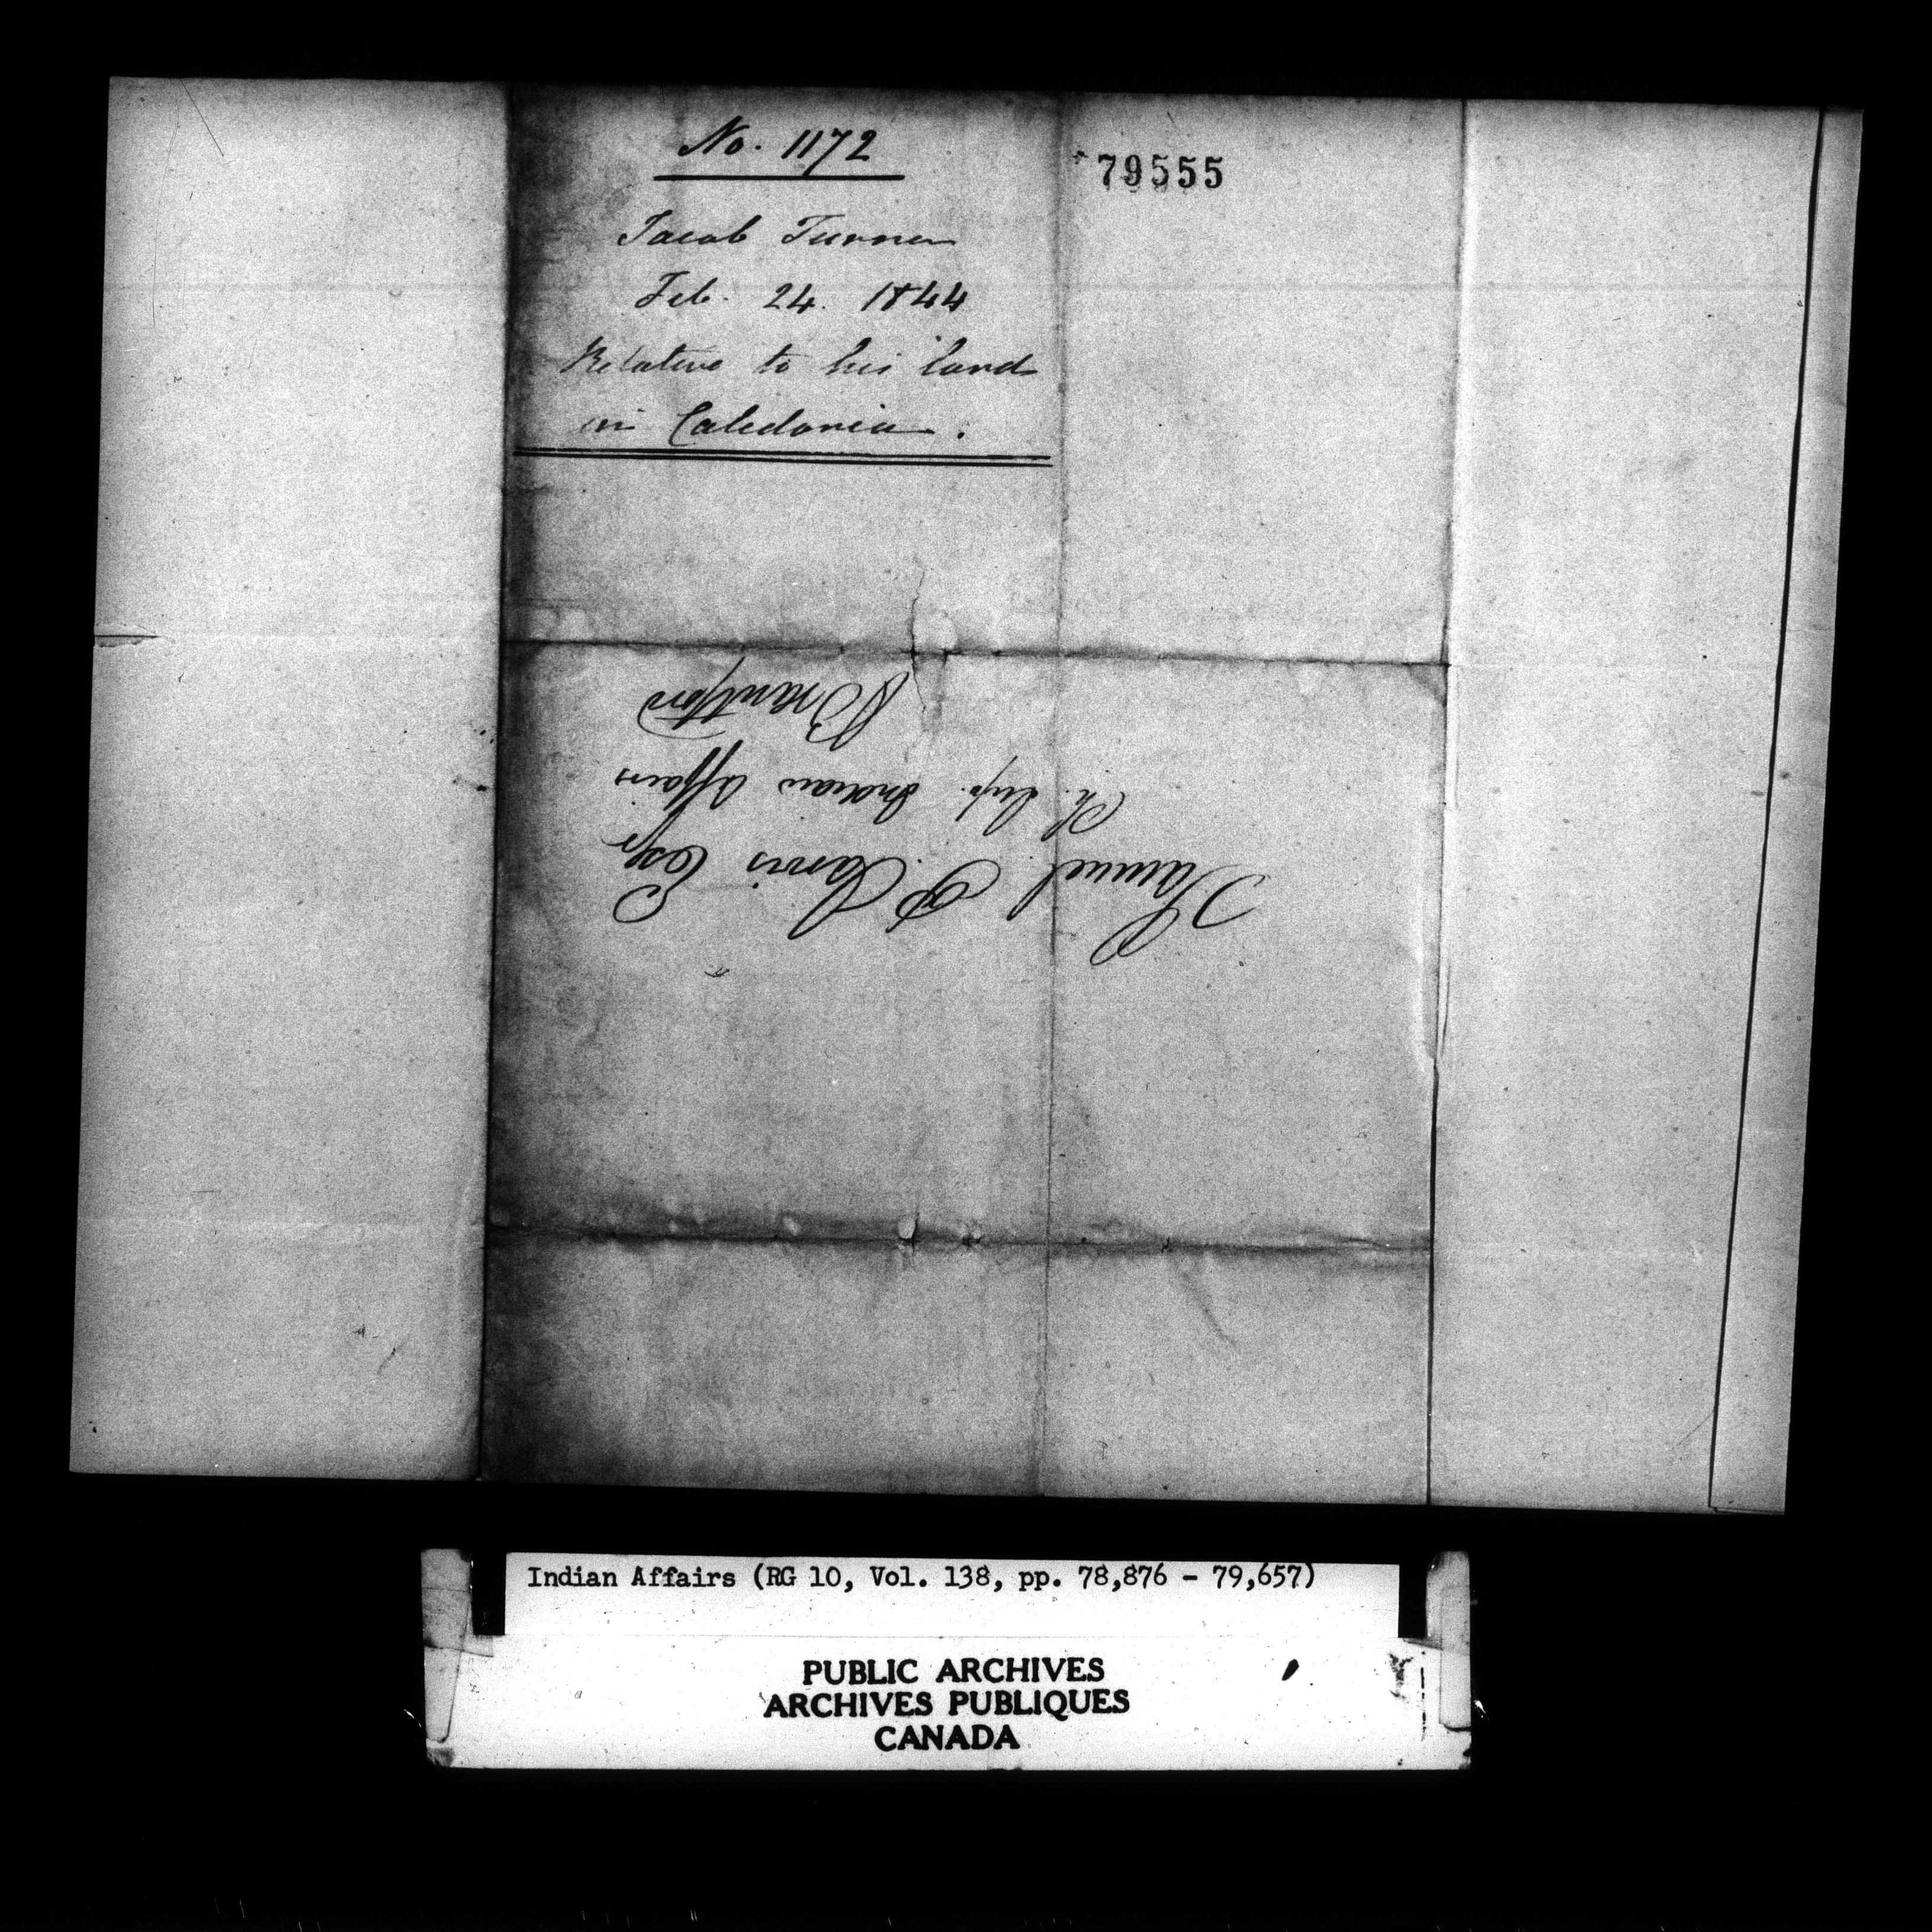 No. 1172
79555
Jacob Turner
Feb. 24. 1844
Relative to his land
in Caledonia.
Samuel P Jarvis Esqr
Ch. Supt. Indian Affairs
Brantford
Indian Affairs (RG 10, Vol. 138, pp. 78,876 - 79,657)
PUBLIC ARCHIVES
ARCHIVES PUBLIQUES
CANADA